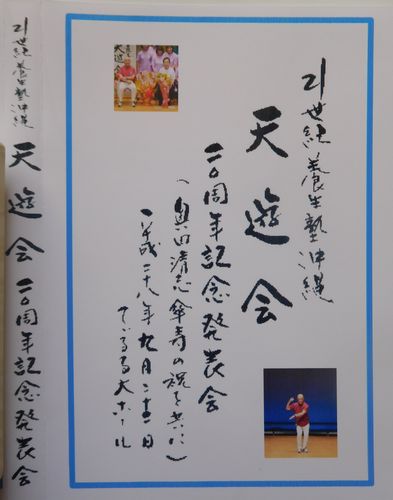 21世紀養生塾沖縄
天遊会
二〇周年記念発表会
(奥田清志傘寿の祝を共に)
平成二十八年九月
てぃるる大ホール
21世紀養生塾沖縄 天遊会 二〇周年記念発表会
天遊会